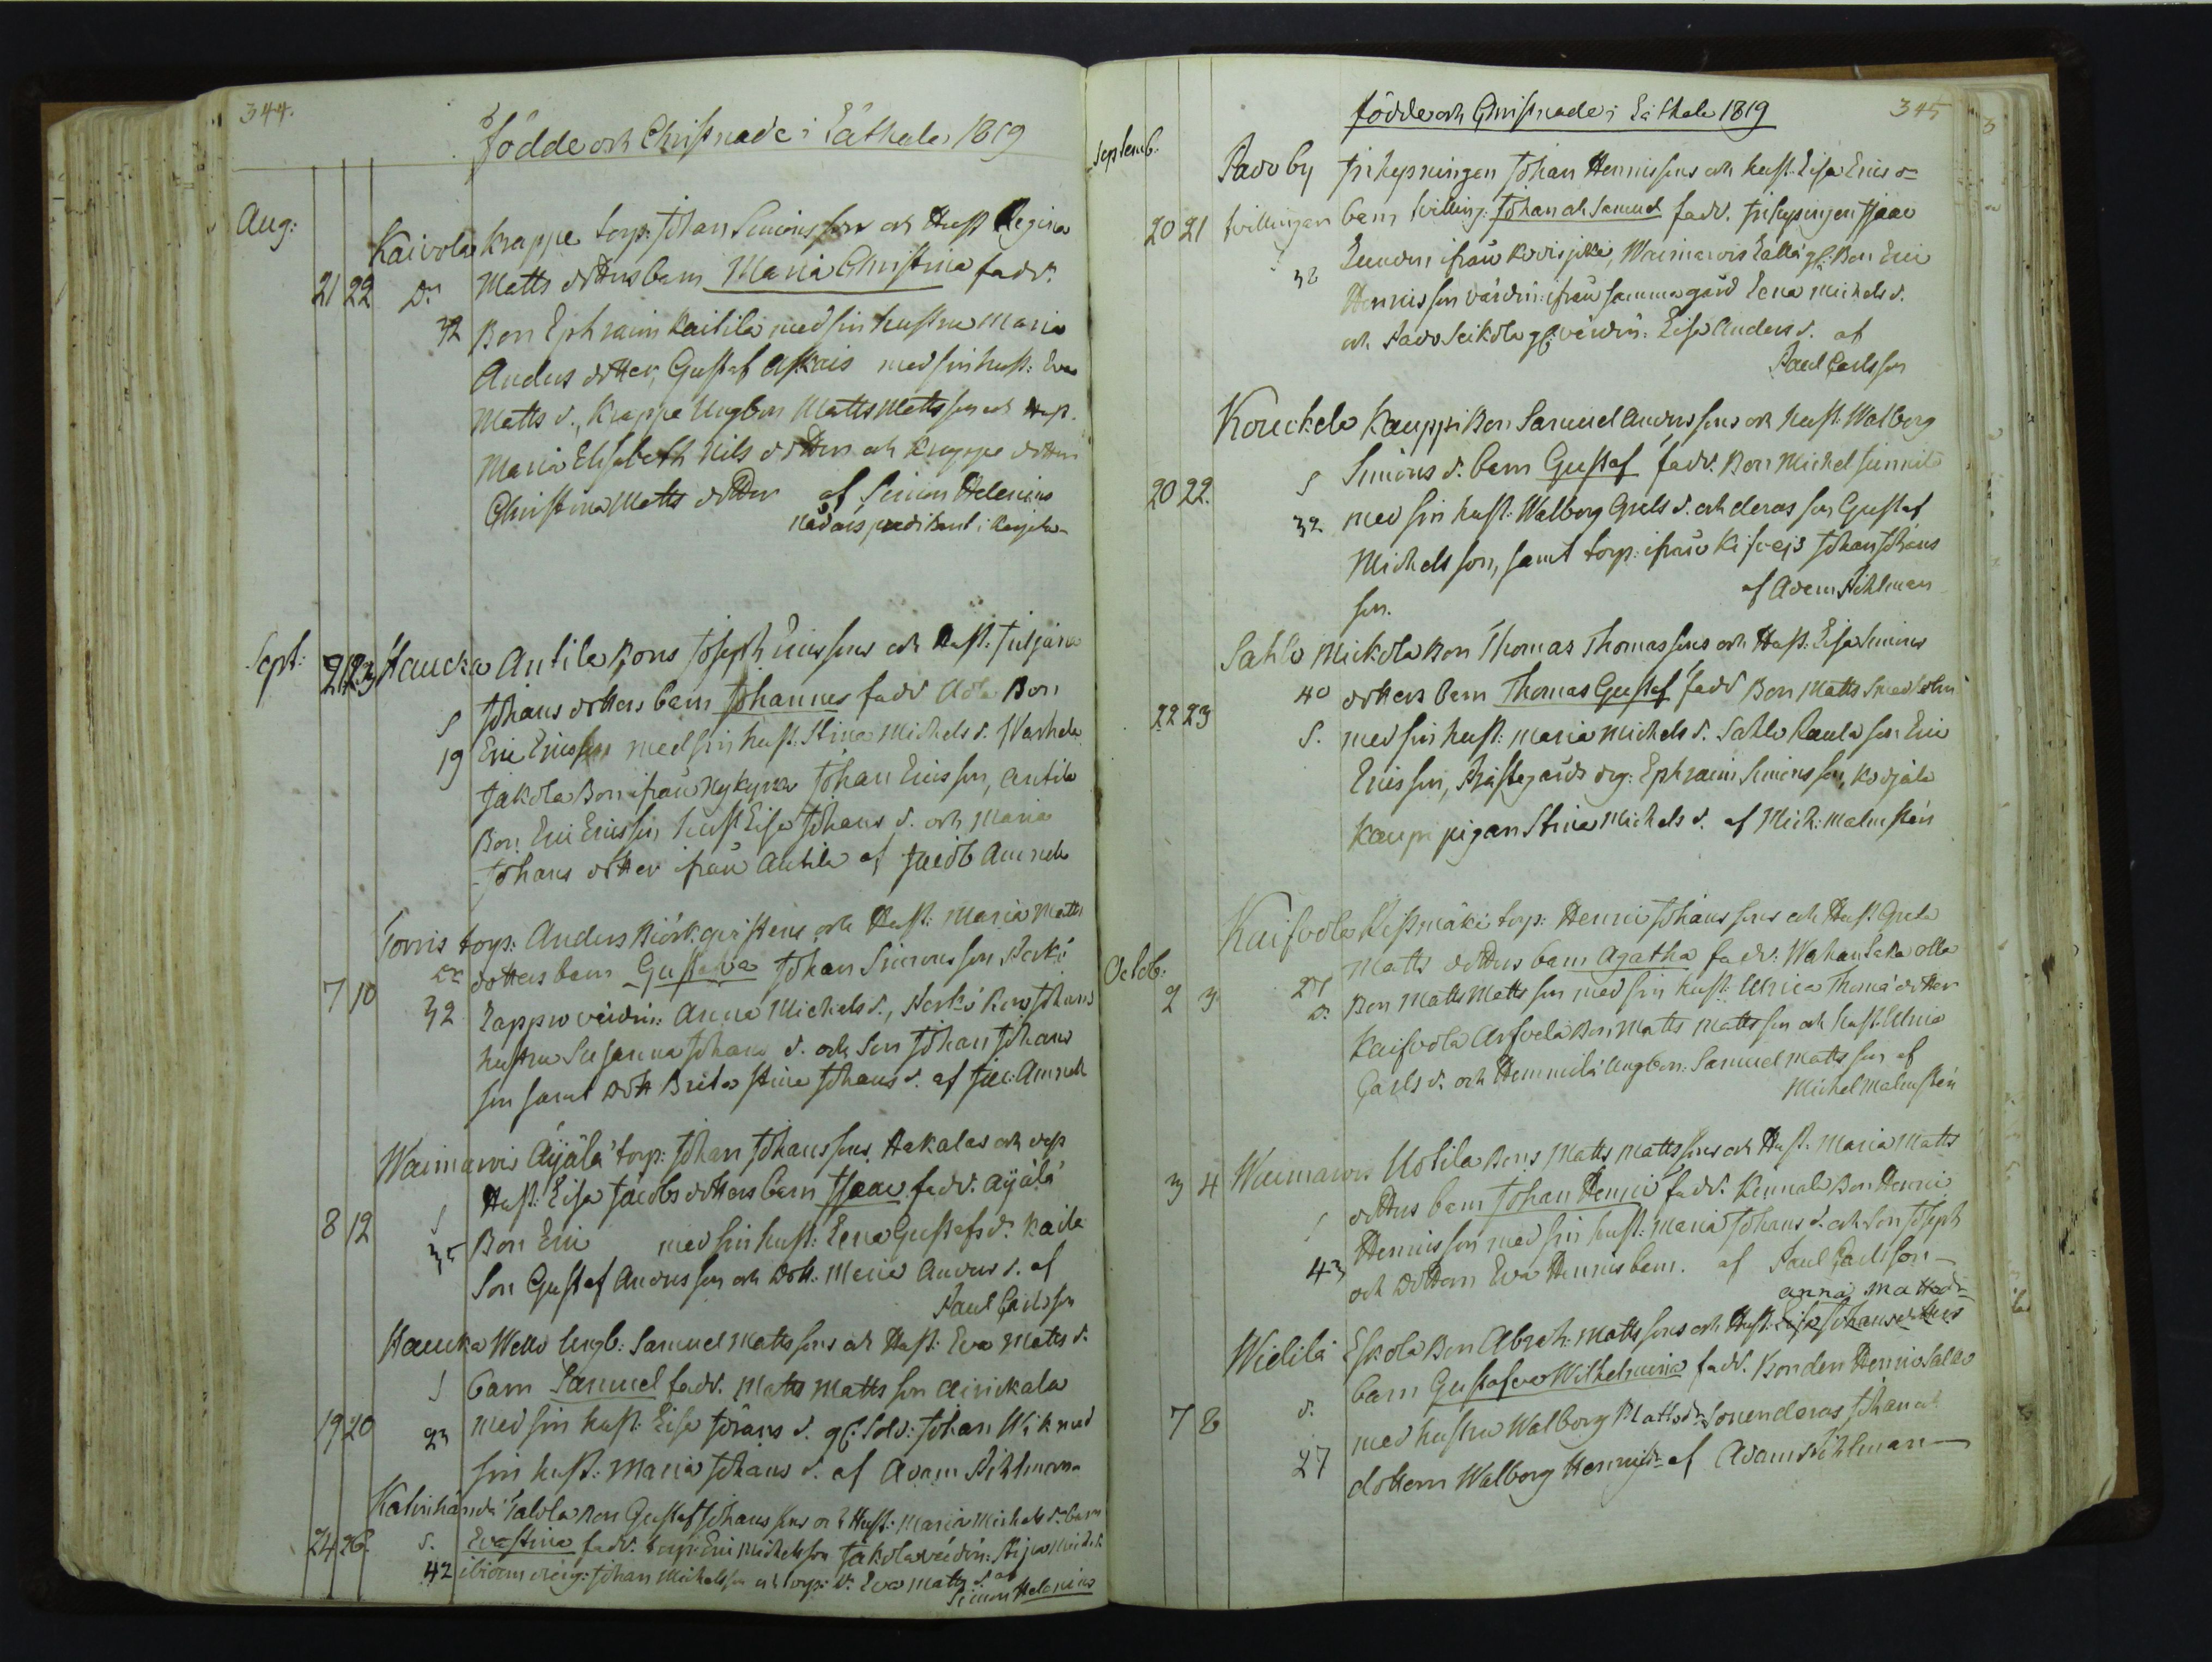 344.
födde och Christnade i Eåthala 1819
Aug:
Kaivola Krappe torp: Johan Simonsson och Hust Regina
21 22 Dr Matts dotters barn Maria Christina fadd:
32 Bon Ephraim Kaitila med sin hustru Maria
Anders dotter, Gustaf Askais med sin hust: Eva
Matts d., Krappe Ungbon Matts Mattsson och Hust.
Maria Elisabeth Nils dotter och Krappe dottern
Christina Matts dotter af Simon Helenius
Nådårs predikant i
Sept: 21 23 Haucka Antila Bons Joseph Ericssons och Hust: Juljana
S Johans dotters barn Johannes fadd Bon
19 Eric Ericsson med sin hust: Stina Michels d.
Jakola Bon ifrån Nykyrka Johan Ericsson, Antila
Bon Eric Ericsson hust Lisa Johans d. och Maria
Johans dotter ifrån Antila af Jacob Amnell
Torris torp: Anders Biörkqvistens och Hust: Maria Matts
7 10 Dr dotters barn Gustava Johan Simonsson Perkiö
32 Lappio värdin: Anna Michels d., Perkiö Bon Johans
hustru Susanna Johans d. och Son Johan Johans
son samt Dott Brita Stina Johans d. af Jac: Amnell
Waimaro Äijälä torp: Johan Johanssons Hakalas och dess
Hust: Lisa Jacobs dotters barn Isaac fadd. Äijälä
8 12 S
35 Bon Eric med sin hust: Lena Gustafs d. Kaila
Son Gustaf Andersson och Dott: Maria Anders d. af
Paul Carlsson
Haucka Wello Ungb: Samuel Mattssons och Hust: Eva Matts d.
S barn Samuel fadd. Matts Mattsson Airickala
19 20 23 med sin hust: Lisa Jörans d. gl: Sold: Johan Wik med
sin hust: Maria Johans d. af Adam Pihlman
Kalmhändä Talola Bon Gustaf Johanssons och Hust: Maria Michels d. barn
24 26. S. Eva Stina fadd: torp: Eric Michelsson Jakola värdin: Michels
42 ibidem dräng: Johan Michelsson och torp: d: Eva Matts d. af
Simon Helenius
345
födde och Christnade i Eåthala 1819
Septemb.
Pavo by Inhysningen Johan Henricssons och hust: Lisa Erics d
20 21 tvillingar barn tvilling: Johan och Samuel fadd. Inhysingen Isaac
32 ifrån Waimaro Bon Eric
Henricsson värdin: ifrån samma gård Lena Michels d.
och Pavo Seikola gl: värdin: Lisa Anders d. af
Paul Carlsson
Kouckela Kauppi Bon Samuel Anderssons och hust: Walborg
20 22. S Simons d. barn Gustaf fadd. Bon Michel Sunnila
32 med sin hust: Walborg Grels d. och deras son Gustaf
Michelsson, samt torp: ifrån Johan Johans
son. af Adam Pihlman
Sahlo Mickola Bon Thomas Thomassons och Hust: Lisa Simons
40 dotters barn Thomas Gustaf fadd Bon Matts
22 23 S. med sin hust: Maria Michels d. Sahlo Raula son Eric
Ericsson, Prästegårds drg: Ephraim Simonsson, Korjala
Kaupi pigan Stina Michels d. af Mich: Malmstén
Kaifvola torp: Henric Johanssons och Hust Greta
Octob: Matts dotters barn Agatha fadd: Wahantaka olla
2 3 27 Bon Matts Mattsson med sin hust: Ulrica Thomæ dotter
D. Kaifvola Arfvela Bon Matts Mattsson och hust: Ulrica
Carls d. och Hemmilä Ungbon: Samuel Mattsson af
Michel Malmstén
3 4 Waimaro Uotila Bons Matts Mattssons och Hust: Maria Matts
S dotters barn Johan Henric fadd. Kennala Bon Henric
Henricsson med sin hust: Maria Johans d. och Son Joseph
43 och Dottern Eva Henrics barn. af Paul Carlsson
anna Matts dr
Widilä Eskola Bon Abrah: Mattssons och Hust: Lisa Johans dotters
d. barn Gustafva Wilhelmina fadd. Bonden Henric Sallo
7 8 med hustru Walborg Matts d. Sonen deras Johan och
27 dottern Walborg Henricsd: af Adam Pihlman